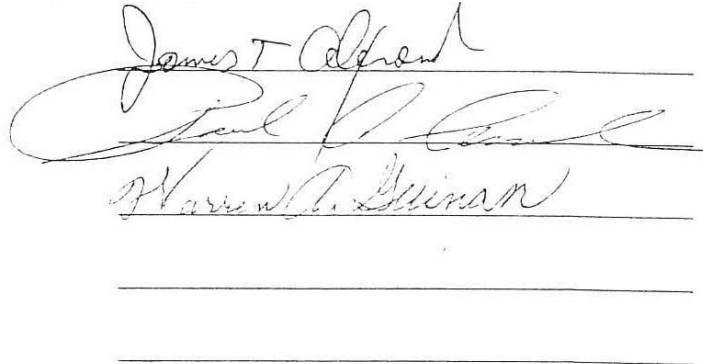 James T Alfond
Paul
Warren A. Guinan